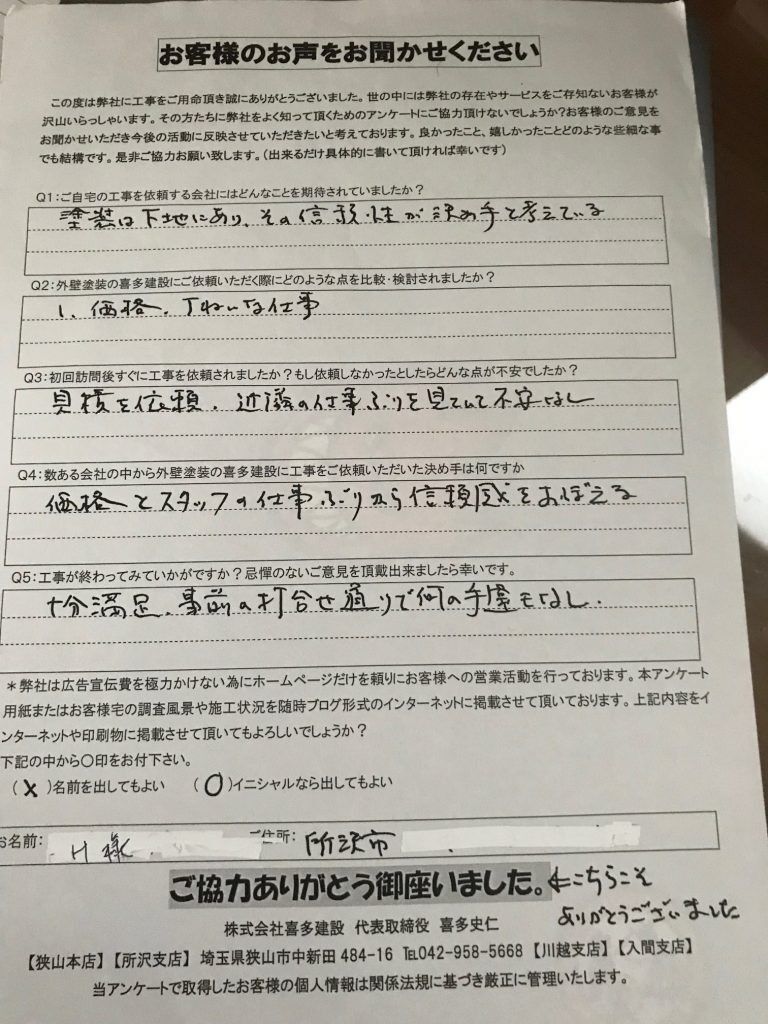 お客様のお声をお聞かせください
この度は弊社に工事をご用命頂き誠にありがとうございました。世の中には弊社の存在やサービスをご存知ないお客様が
沢山いらっしゃいます。その方たちに弊社をよく知って頂くためのアンケートにご協力頂けないでしょうか?お客様のご意見を
お聞かせいただき今後の活動に反映させていただきたいと考えております。良かったこと、嬉しかったことどのような些細な事
でも結構です。是非ご協力お願い致します。(出来るだけ具体的に書いて頂ければ幸いです)
Q1:ご自宅の工事を依頼する会社にはどんなことを期待されていましたか?
塗装は下地にあり、その信頼性が決め手と考えている
Q2:外壁塗装の喜多建設にご依頼いただく際にどのような点を比較・検討されましたか?
1、価格、丁ねいな仕事
Q3:初回訪問後すぐに工事を依頼されましたか?もし依頼しなかったとしたらどんな点が不安でしたか?
見積を依頼、近隣の仕事ぶりを見ていて不安なし
Q4:数ある会社の中から外壁塗装の喜多建設に工事をご依頼いただいた決め手は何ですか
価格とスタッフの仕事ぶりから信頼感をおぼえる
Q5:工事が終わってみていかがですか?忌憚のないご意見を頂戴出来ましたら幸いです。
十分満足、事前の打合せ通りで何の手違もなし.
*弊社は広告宣伝費を極力かけない為にホームページだけを頼りにお客様への営業活動を行っております。本アンケート
用紙またはお客様宅の調査風景や施工状況を随時ブログ形式のインターネットに掲載させて頂いております。上記内容をイ
ンターネットや印刷物に掲載させて頂いてもよろしいでしょうか?
下記の中から〇印をお付下さい。
(x)名前を出してもよい (O)イニシャルなら出してもよい
お名前: H様 ご住所: 所沢市
ご協力ありがとう御座いました。←こちらこそ
ありがとうございました
株式会社喜多建設 代表取締役 喜多史仁
【狭山本店】【所沢支店】 埼玉県狭山市中新田484-16 ℡042-958-5668【川越支店】【入間支店】
当アンケートで取得したお客様の個人情報は関係法規に基づき厳正に管理いたします。